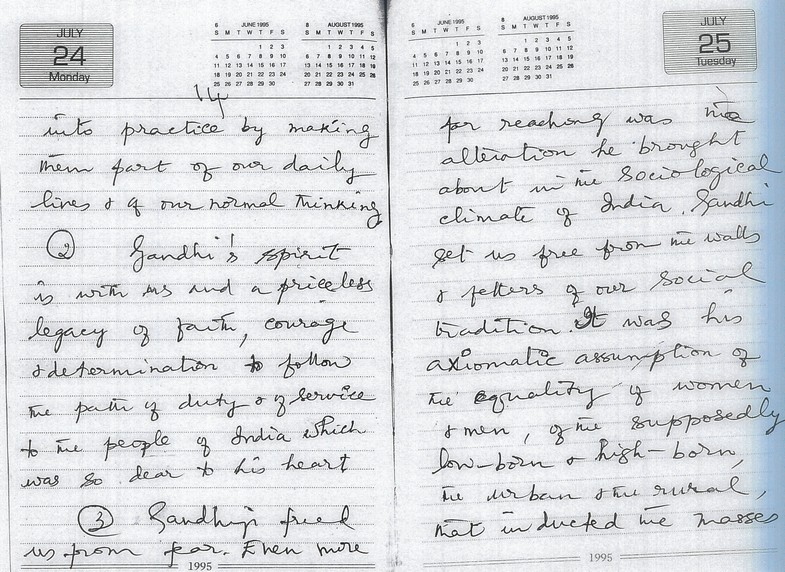 JULY
24
Monday
6 JUNE 1995
S M T W T F S
1 2 3
4 5 6 7 8 9 10
11 12 13 14 15 16 17
18 19 20 21 22 23 24
25 26 27 28 29 30
8 AUGUST 1995
S M T W T F S
1 2 3 4 5
6 7 8 9 10 11 12
13 14 15 16 17 18 19
20 21 22 23 24 25 26
27 28 29 30 31
14
into practice by making
them part of our daily
lives & of our normal thinking
② Gandhi's spirit
is with us and a priceless
legacy of faith, courage
& determination to follow
the path of duty & of service
to the people of India which
was so dear to his heart
③ Gandhiji freed
us from fear. Even more
1995
6 JUNE 1995
S M T W T F S
1 2 3
4 5 6 7 8 9 10
11 12 13 14 15 16 17
18 19 20 21 22 23 24
25 26 27 28 29 30
8 AUGUST 1995
S M T W T F S
1 2 3 4 5
6 7 8 9 10 11 12
13 14 15 16 17 18 19
20 21 22 23 24 25 26
27 28 29 30 31
JULY
25
Tuesday
far reaching was the
alteration he brought
about in the Sociological
climate of India. Gandhi
set us free from the walls
& fetters of our social
tradition. It was his
axiomatic assumption of
the equality of women
& men, of the supposedly
low-born & high-born,
the urban & the rural,
that inducted the masses
1995